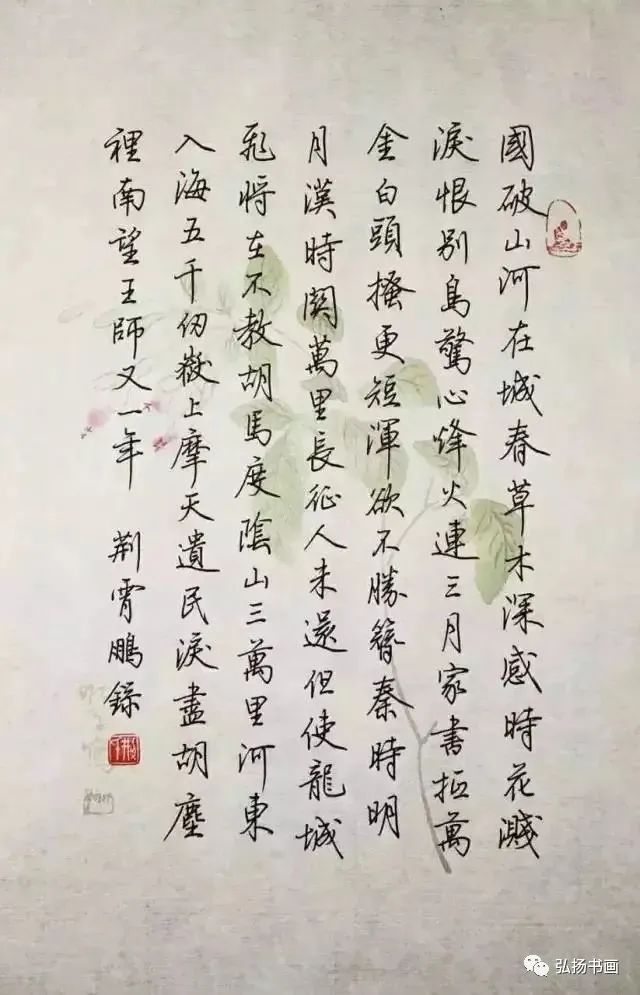 國破山河在城春草木深感時花濺
淚恨別鳥驚心烽火連三月家書抵萬
金白頭搔更短渾欲不勝簪秦時明
月漢時関萬里長征人未還但使龍城
飛將在不教胡馬度陰山三萬里河東
入海五千仞嶽上摩天遺民淚盡胡塵
裡南望王師又一年 荆霄鵬錄
弘扬书画